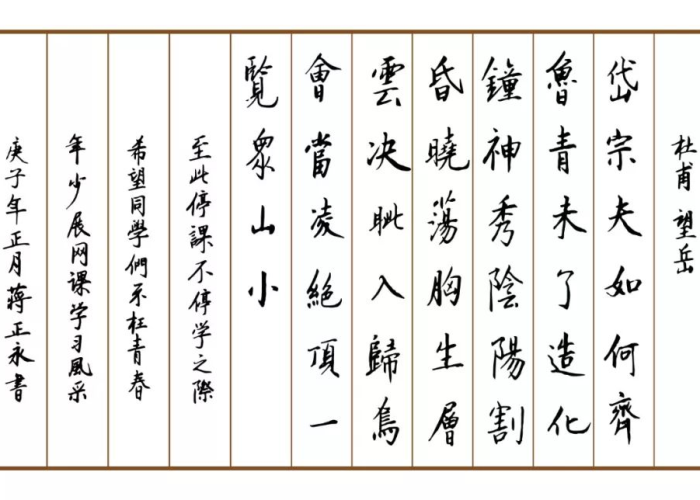 杜甫望岳
岱宗夫如何齊
魯青未了造化
鐘神秀陰陽割
昏曉蕩胸生層
雲决眦入歸鳥
會當凌絕頂一
覽眾山小
至此停課不停學之際
希望同學們不枉青春
年少展网课学习風采
庚子年正月蔣正永書